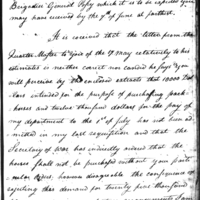 Brigadier General Posey which it is to be expected you
may have received by the 9th of June at farthest.
It is conceived that the letter from the
Quarter Master General of the 9th May relatively to his
estimates is neither correct nor candid he says you
will perceive by the enclosed extracts that 10000 Dol
lars extended for the purpose of purchasing pack
horses and twelve thousand dollars for the pay of
my department to the 1st of July has not been ad
mitted in my last requisition and that the
Secretary of War has indirectly ordered that the
horses shall not be purchased without your parti
cular orders, however disagreeable the consequence of
rejecting his demand for twenty five thousand